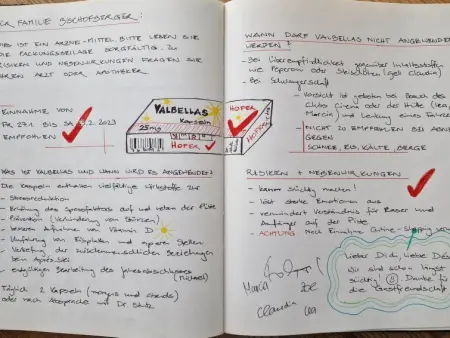 DER FAMILIE BISCHOFBERGER!
IST EIN ARZNEI-MITTEL. BITTE LESEN SIE
DIE PACKUNGSBEILAGE SORGFÄLTIG. ZU
RISIKEN UND NEBENWIRKUNGEN FRAGEN SIE
IHREN ARZT ODER APOTHEKER.
EINNAHME VON
FR 27.1. BIS SA 2.2023
EMPFOHLEN
VALBELLAS
Kapseln
25mg
HOFER
HOFER
WAS IST VALBELLAS UND WANN WIRD ES ANGEWENDET?
Die Kapseln enthalten vielfältige Wirkstoffe zur
- Stressreduktion
- Erhöhung des Spassfaktors auf und neben der Piste
- Prävention (Verhinderung von Stürzen)
- besseren Aufnahme von Vitamin D
- Umfahrung von Eisplatten und apere Stellen
- Vertiefung der zwischenmenschlichen Beziehungen
beim Après-Ski
- endgültigen Bearbeitung des Jahresabschlusses
Täglich 2 Kapseln (morgens und abends)
oder nach Absprache mit Dr. Stutz
WANN DARF VALBELLAS NICHT ANGEWENDET
WERDEN?
- Bei Überempfindlichkeit gegenüber Inhaltsstoffen
wie Peperoni oder Steinböcken (gell Claudia)
- Bei Schwangerschaft
- Vorsicht ist geboten bei Besuch des
Clubs Cinema oder der Hütte
Marcia) und Lenkung eines Fahrze
- NICHT ZU EMPFEHLEN BEI ABNEI
GEGEN
SCHNEE, EIS, KÄLTE, BERGE
RISIKEN + NEBENWIRKUNGEN
- kann süchtig machen!
- löst starke Emotionen aus
- vermindert Verständnis für Raser und
Anfänger auf der Piste
- ACHTUNG: Nach Einnahme Online-Shopping verm
Lieber Didi, liebe Dési
Wir sind schon längst
süchtig! Danke für
die Gastfreundschaft
Marcia
Zoé
Claudia